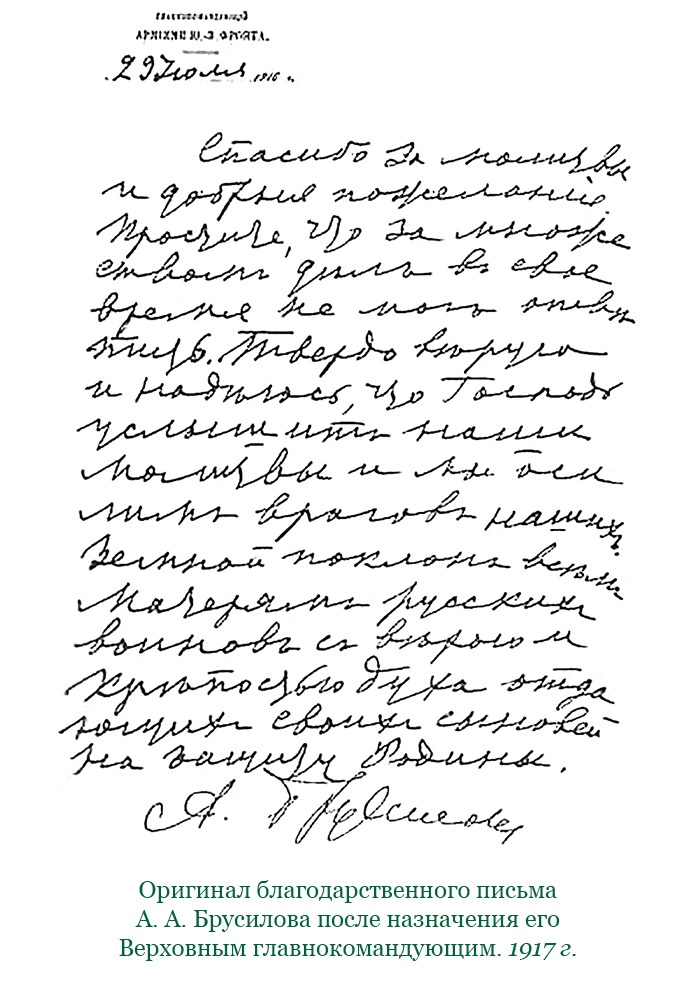 ГЛАВНОКОМАНДУЮЩІЙ
АРМІЯМИ Ю.-З. ФРОНТА.
29 Июля 1916 г.
Спасибо за молитвы
и добрыя пожеланія.
Простите, что за множе
ствомъ дѣлъ въ свое
время не могъ отвѣ
тить. Твердо вѣрую
и надѣюсь, что Господь
услышитъ наши
молитвы и мы оси
лимъ враговъ нашихъ.
Земной поклонъ всѣмъ
матерямъ русскихъ
воиновъ съ вѣрою и
крѣпостью духа отда
ющихъ своихъ сыновей
на защиту Родины.
А. Брусиловъ
Оригинал благодарственного письма
А. А. Брусилова после назначения его
Верховным главнокомандующим. 1917 г.